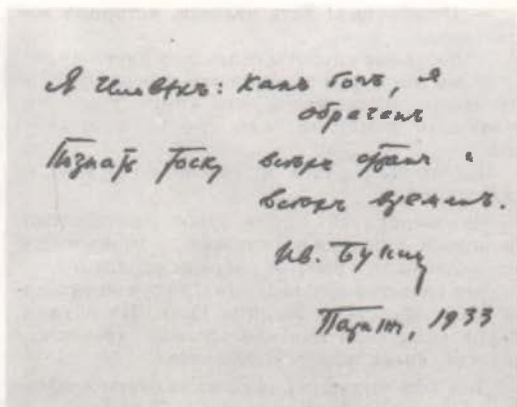 Я человѣкъ: какъ богъ, я
обреченъ
Познать тоску всѣхъ странъ и
всѣхъ временъ.
Ив. Бунин
Париж, 1933